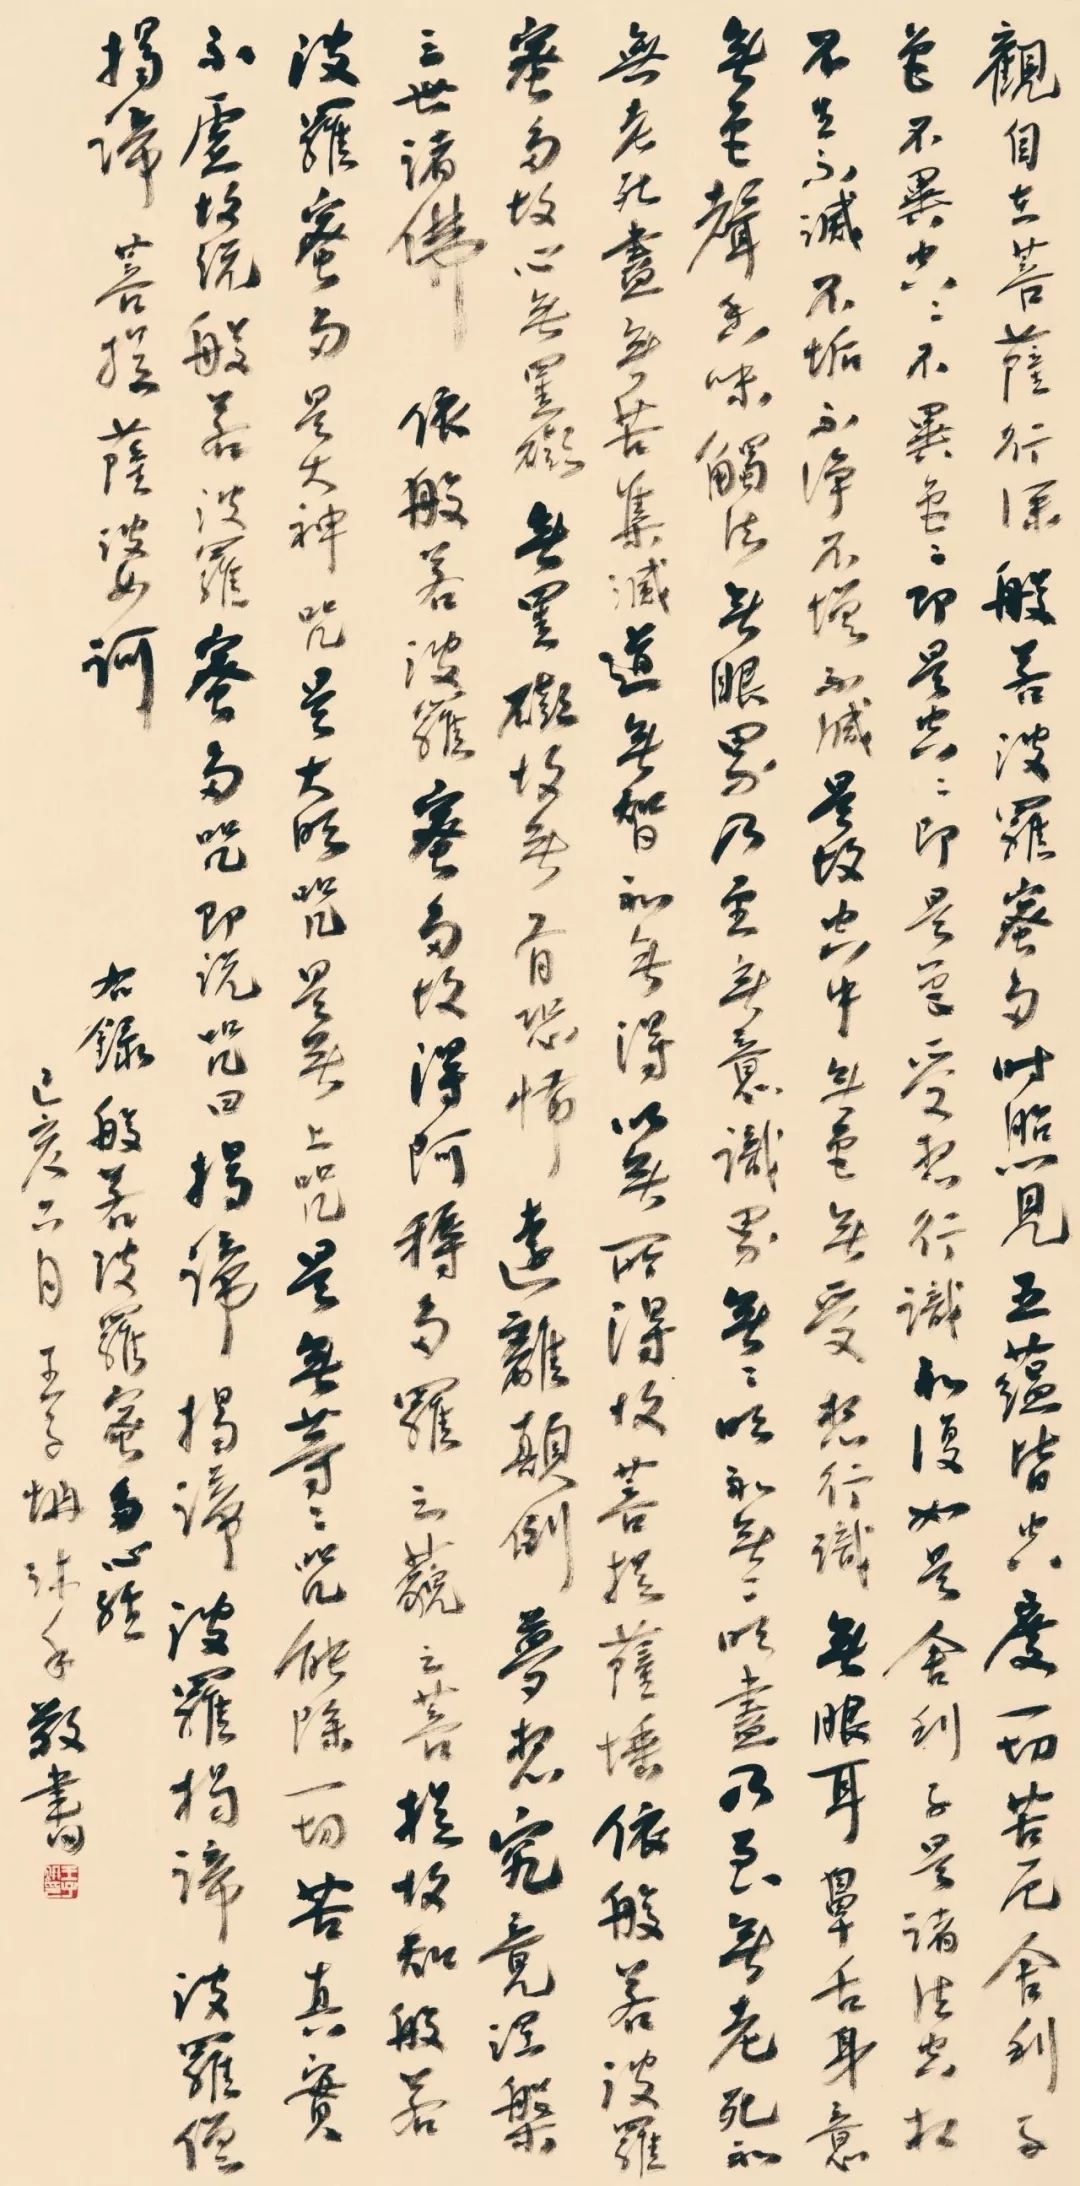 觀自在菩薩行深般若波羅蜜多時照見五蘊皆空度一切苦厄舍利子
色不異空〻不異色〻即是空〻即是色受想行識亦復如是舍利子是諸法空相
不生不滅不垢不淨不增不減是故空中無色無受想行識無眼耳鼻舌身意
無色聲香味觸法無眼界乃至無意識界無〻明亦無〻明盡乃至無老死亦
無老死盡無苦集滅道無智亦無得以無所得故菩提薩埵依般若波羅
蜜多故心無罣礙無罣礙故無有恐怖遠離顛倒夢想究竟涅槃
三世諸佛依般若波羅蜜多故得阿耨多羅三藐三菩提故知般若
波羅蜜多是大神咒是大明咒是無上咒是無等〻咒能除一切苦真實
不虛故說般若波羅蜜多咒即說咒曰揭諦揭諦波羅揭諦波羅僧
揭諦菩提薩婆訶
右錄般若波羅蜜多心經
己亥六月王子沐手敬書